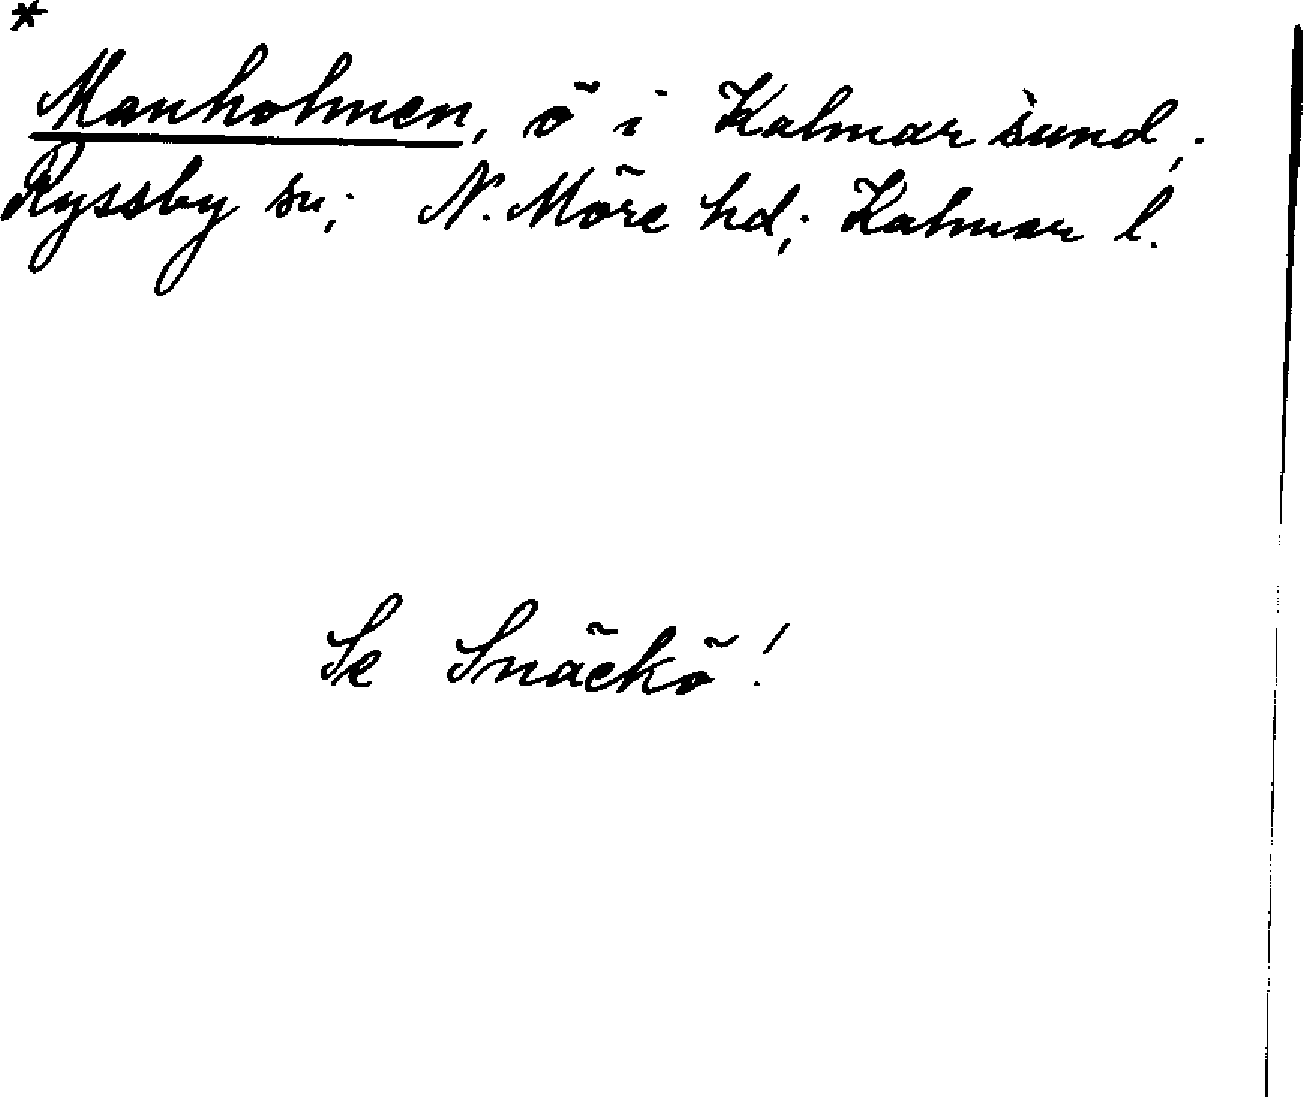 *
Manholmen, ö i Kalmar sund;
Ryssby sn; N. Möre hd; Kalmar l.
Se Snäckö!